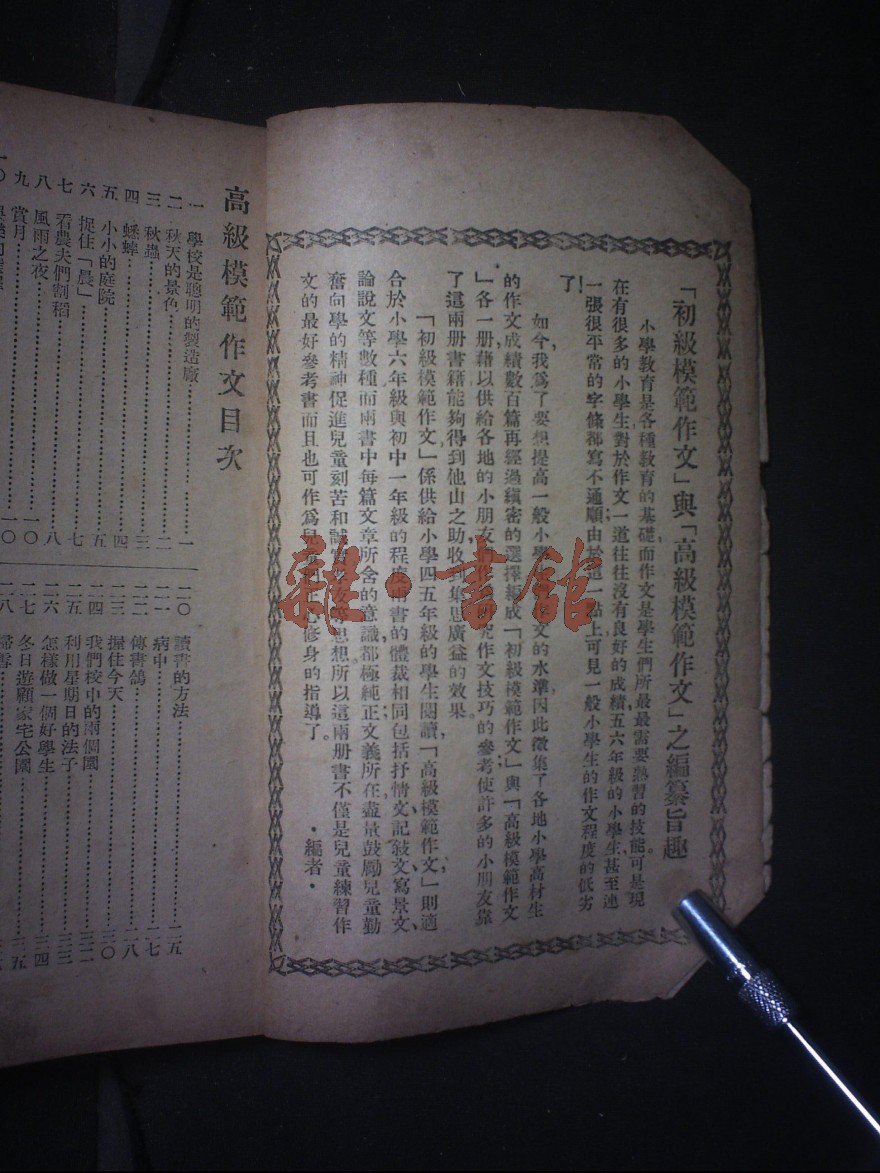 「初級模範作文」與「高級模範作文」之編纂旨趣
小學教育是各種教育的基礎,而作文是學生們所最最需要熟習的技能。可是現
在有很多的小學生,對於作文一道,往往沒有良好的成績;五六年級的小學生,甚至連
一張很平常的字條都寫不通順,由於這一點上可見一般小學生的作文程度的低劣
了!
如今,我爲了要想提高一般小學 作文的水準,因此徵集了各地小學高材生
的作文成績數百篇,再經過縝密的選擇,編成「初級模範作文」與「高級模範作文
」各一册,藉以供給各地的小朋友 究作文技巧的參考,使許多的小朋友,靠
了這兩册書籍,能夠得到他山之助,收到集思廣益的效果。
「初級模範作文」係供給小學四五年級的學生閱讀,「高級模範作文」則適
合於小學六年級與初中一年級的程度;兩書的體裁相同,包括抒情文、記敍文、寫景文、
論說文等數種,而兩書中每篇文章所含的意識都極純正,文義所在,盡量鼓勵兒童勤
奮向學的精神,促進兒童刻苦和誠實 等思想。所以這兩册書不僅是兒童練習作
文的最好參考書,而且也可作爲兒 修身的指導了。
·編者·
高級模範作文目次
一 學校是聰明的製造廠 一
二 秋天的景色 二
三 秋蟲 三
四 蟋蟀 四
五 小小的庭院 五
六 捉住「晨」 七
七 看農夫們割稻 七
八 風雨之夜 八
九 賞月 一〇
一〇 一〇
二〇 讀書的方法 二五
二一 病中 二七
二二 傳書鴿 二八
二三 握住今天 三〇
二四 我們校中的兩個園 三二
二五 利用星期日的法子 三三
二六 怎樣做一個好學生 三四
二七 冬日遊顧家宅公園 三五
二八 掃雪
雜·書館